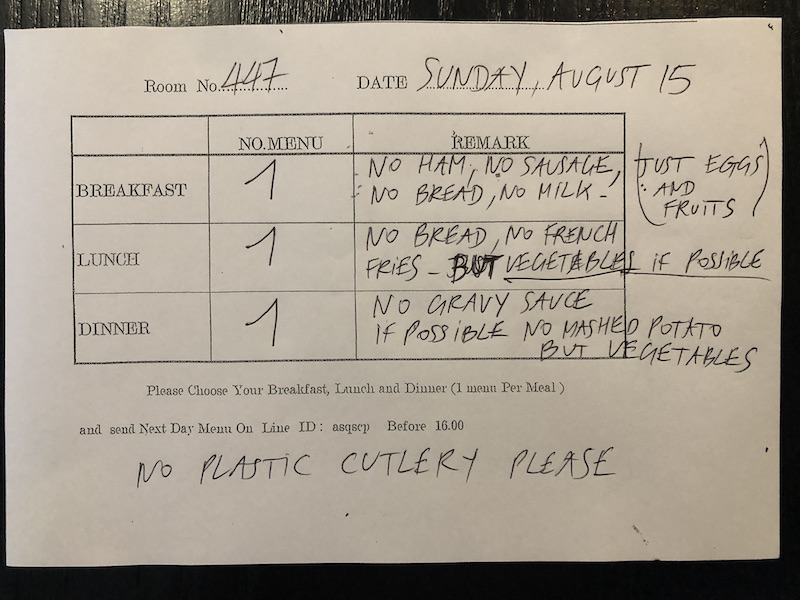 Room No. 447 DATE SUNDAY, AUGUST 15
NO.MENU REMARK
BREAKFAST 1 NO HAM, NO SAUSAGE,
NO BREAD, NO MILK -
(JUST EGGS
AND
FRUITS)
LUNCH 1 NO BREAD, NO FRENCH
FRIES - BUT VEGETABLES IF POSSIBLE
DINNER 1 NO GRAVY SAUCE
IF POSSIBLE NO MASHED POTATO
BUT VEGETABLES
Please Choose Your Breakfast, Lunch and Dinner (1 menu Per Meal )
and send Next Day Menu On Line ID: asqscp Before 16.00
NO PLASTIC CUTLERY PLEASE